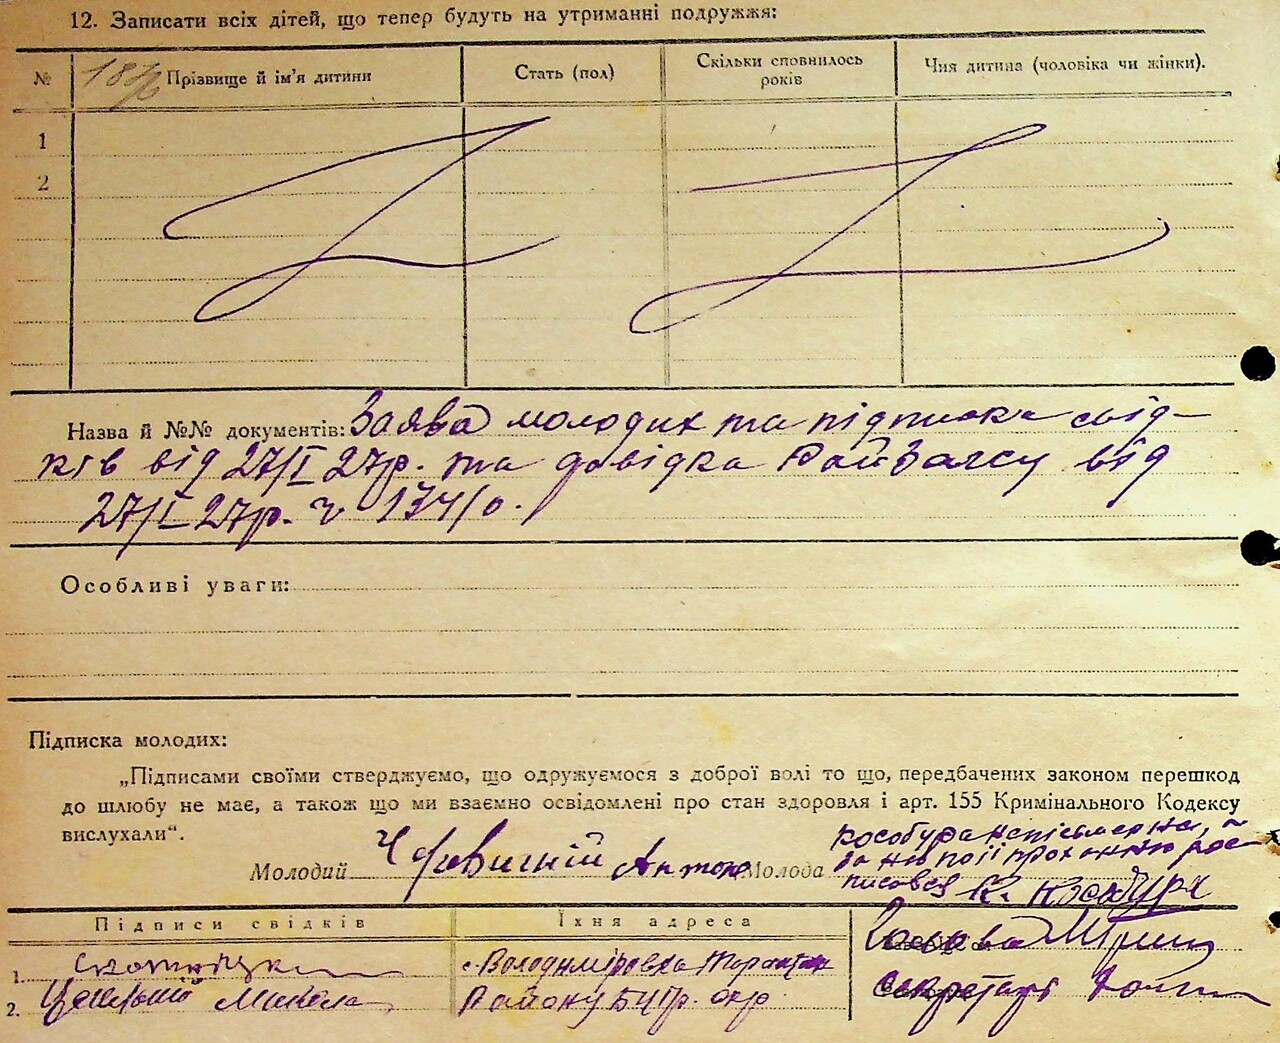 12. Записати всіх дітей, що тепер будуть на утриманні подружжя:
№ Прізвище й ім'я дитини Стать (пол) Скільки сповнилось років Чия дитина (чоловіка чи жінки).
1
2
Назва й №№ документів: Заява молодих та підписка свід-
ків від 27/I 27р. та довідка РайЗагсу від
27/I-27р. ч 134/о.
Особливі уваги:
Підписка молодих:
„Підписами своїми стверджуємо, що одружуємося з доброї волі то що, передбачених законом перешкод
до шлюбу не має, а також що ми взаємно освідомлені про стан здоровля і арт. 155 Кримінального Кодексу
вислухали“.
Кособура неписьменна, а
за неї по її проханню рос-
Молодий Антон Молода писався К. Кособура
Підписи свідків Їхня адреса Голова
1. с. Володимирівка
2. Микола Району окр. Секретарь